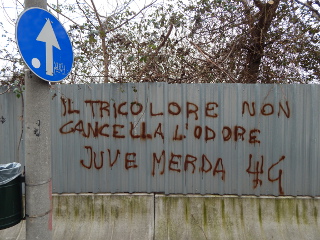 IL TRICOLORE NON
CANCELLA L'ODORE
JUVE MERDA